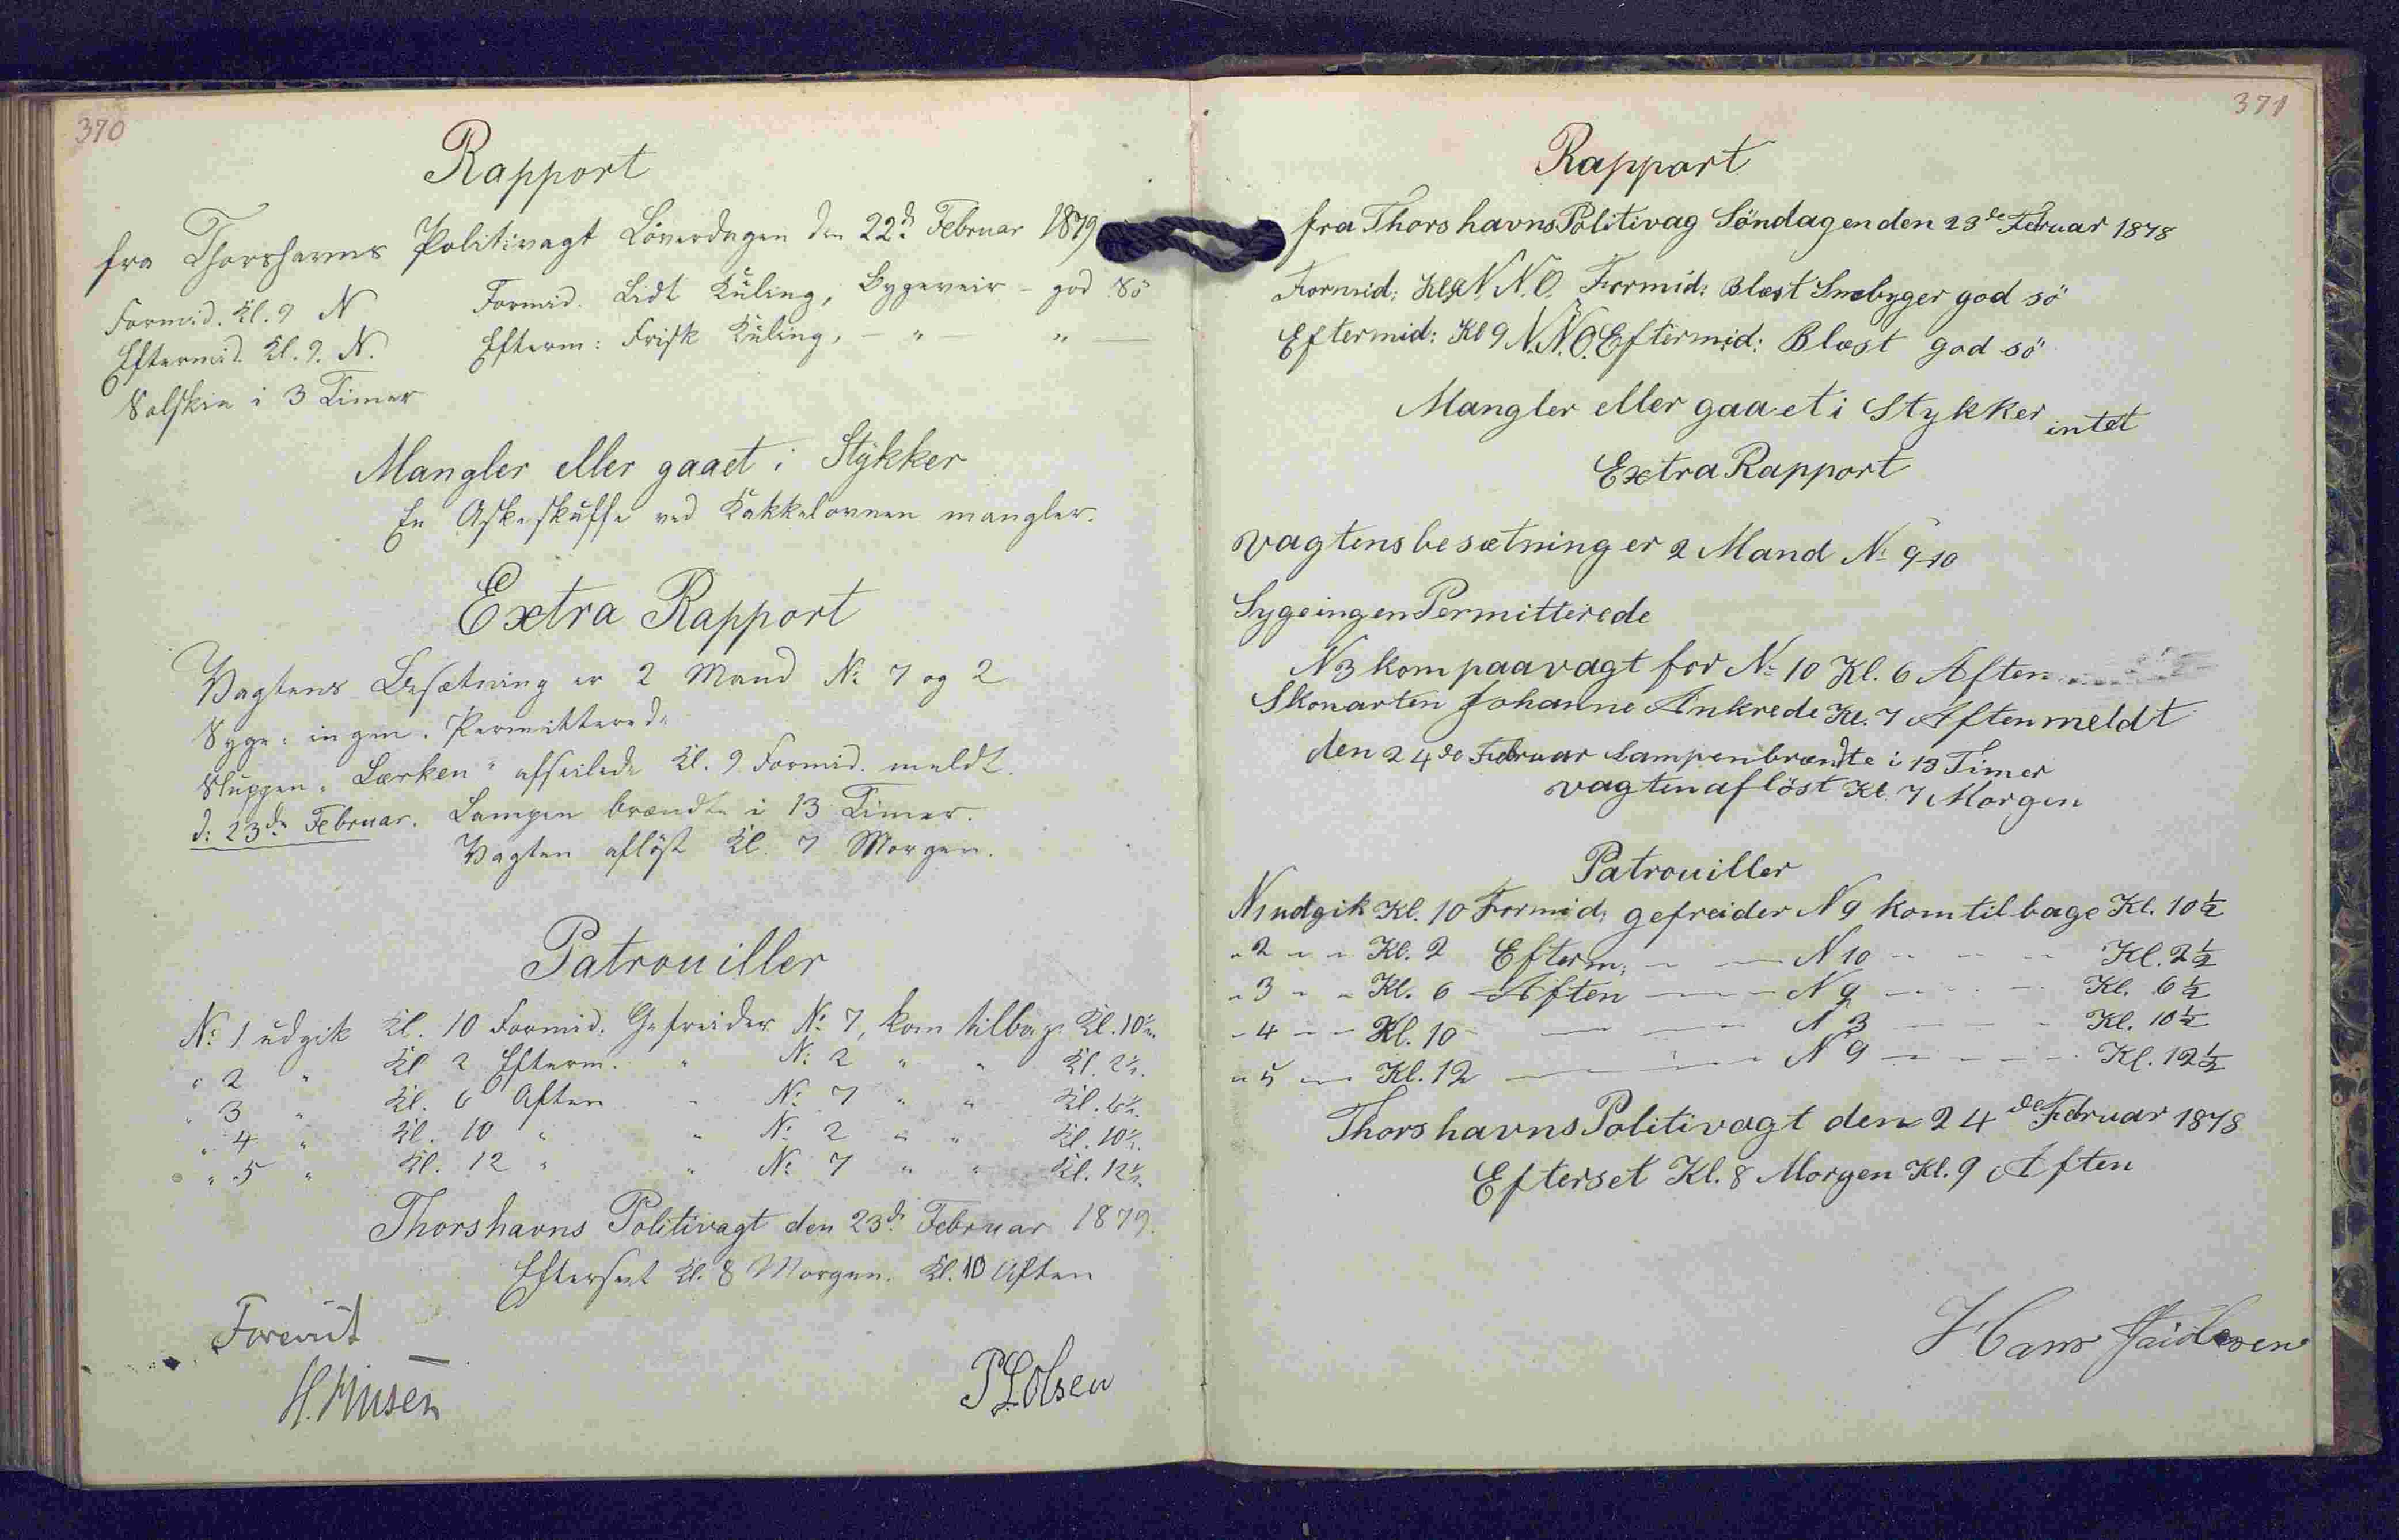 370
Rapport
fra Thorshavns Politivagt Löverdagen den 22d Februar 1879
Formid. Kl. 9 N Formid. Lidt Kuling, Bygeveir - god Sö
Eftermid. Kl. 9. N. Efterm: Frisk Kuling, - " - " -
Solskin i 3 Timer
Mangler eller gaaet i Stykker
En Askeskuffe ved Kakkelovnen mangler.
Extra Rapport
Vagtens Besætning er 2 Mand No 7 og 2
Syge: ingen. Permitterede
Sluppen "Lærken" afseilede Kl. 9 Formid. meldt.
d: 23de Februar. Lampen brændte i 13 Timer.
Vagten aflöst Kl. 7 Morgen.
Patrouiller
No 1 udgik Kl. 10 Formid. Gefreider No 7, kom tilbage Kl. 10½.
" 2 " Kl 2 Efterm. " No 2 " " Kl. 2½.
" 3 " Kl. 6 Aften " No 7 " " Kl. 6½.
" 4 " Kl. 10 " " No 2 " " Kl. 10½.
" 5 " Kl. 12 " " No 7 " " Kl. 12½.
Thorshavns Politivagt den 23d Februar 1879.
Efterseet Kl. 8 Morgen. Kl. 10 Aften
P.L. Olsen
371
Rapport
fra Thorshavns Politivag Söndagen den 23de Februar 1878
Formid: Kl 9 N.N.O. Formid: Blæst Snebyger god sö
Eftermid: Kl 9 N.N.O. Eftermid: Blæst god sö
Mangler eller gaaet i Stykker intet
Extra Rapport
vagtens besætning er 2 Mand No 9-10
Syge ingen Permitterede
N 3 kom paa vagt for No 10 Kl. 6 Aften
Skonarten Johanne Ankrede Kl. 7 Aften meldt
den 24de Februar Lampen brændte i 13 Timer
vagten aflöst Kl. 7 Morgen
Patrouiller
N 1 udgik Kl. 10 Formid: gefreider N 9 kom tilbage Kl. 10½
" 2 " " Kl. 2 Efterm: - - N 10 - - - Kl. 2½
" 3 " " Kl. 6 Aften - - N 9 - - - Kl. 6½
" 4 - - Kl. 10 - - - N 3 - - - Kl. 10½
" 5 - Kl. 12 - - - N 9 - - - Kl. 12½
Thorshavns Politivagt den 24de Februar 1878
Efterset Kl. 8 Morgen Kl. 9 Aften
Hans